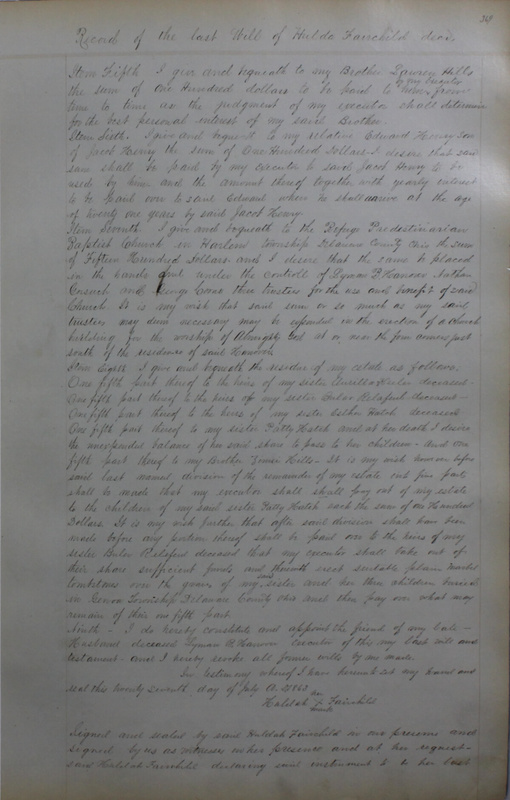 Record of the last Will of Hulda Fairchild decd.
Item Fifth I give and bequeath to my Brother Hills
the sum of One Hundred dollars to be paid to him from
by my executor
time to time as the judgment of my executor shall determine
for the best personal interest of my said Brother.
Item Sixth. I give and bequeath to my relative Edward Henry Son
of Jacob Henry the sum of One Hundred Dollars I desire that said
sum shall be paid by my executor to said Jacob Henry to be
used by him and the amount thereof together with yearly interest
to be paid over to said Edward when he shall arrive at the age
of twenty one years by said Jacob Henry.
Item Seventh I give and bequeath to the Refuge Predestinarian
Baptist Church in Harlem Township Delaware County Ohio the sum
of Fifteen Hundred Dollars and I desire that the same be placed
in the hands and under the controll of Lyman P. Hanover Nathan
and trustees for the use and benefit of said
Church It is my wish that said sum or so much as my said
trustees may deem necessary may be expended in the erection of a church
building for the worship of Almighty God at or near the four corners just
south of the residence of said Hanover
Item Eighth I give and bequeath the residue of my estate as follows.
One fifth part thereof to the heirs of my sister deceased -
One fifth part thereof to the heirs of my sister deceased -
One fifth part thereof to the heirs of my sister Esther Hatch deceased
One fifth part thereof to my sister Patty Hatch and at her death I desire
the unexpended balance of her said share to pass to her children - And one
fifth part thereof to my Brother Hills - It is my wish however before
said last named division of the remainder of my estate into five parts
shall be made that my executor shall pay out of my estate
to the children of my said sister Patty Hatch each the sum of One Hundred
Dollars. It is my wish further that after said division shall have been
made before any portion thereof shall be paid over to the heirs of my
sister deceased that my executor shall take out of
their share sufficient funds and therewith erect suitable plain marble
tombstones over the graves of my said sister and her three children buried
in Genoa Township Delaware County Ohio and then pay over what may
remain of their one fifth part.
Ninth - I do hereby constitute and appoint the friend of my late
Husband deceased Lyman P. Hanover executor of this my last will and
testament - and I hereby revoke all former wills by me made.
In testimony whereof I have hereunto set my hand and
seal this twenty seventh day of July A.D. 1863
her
Huldah x Fairchild
mark
Signed and sealed by said Huldah Fairchild in our presence and
signed by us as witnesses in her presence and at her request -
said Huldah Fairchild declaring said instrument to be her last